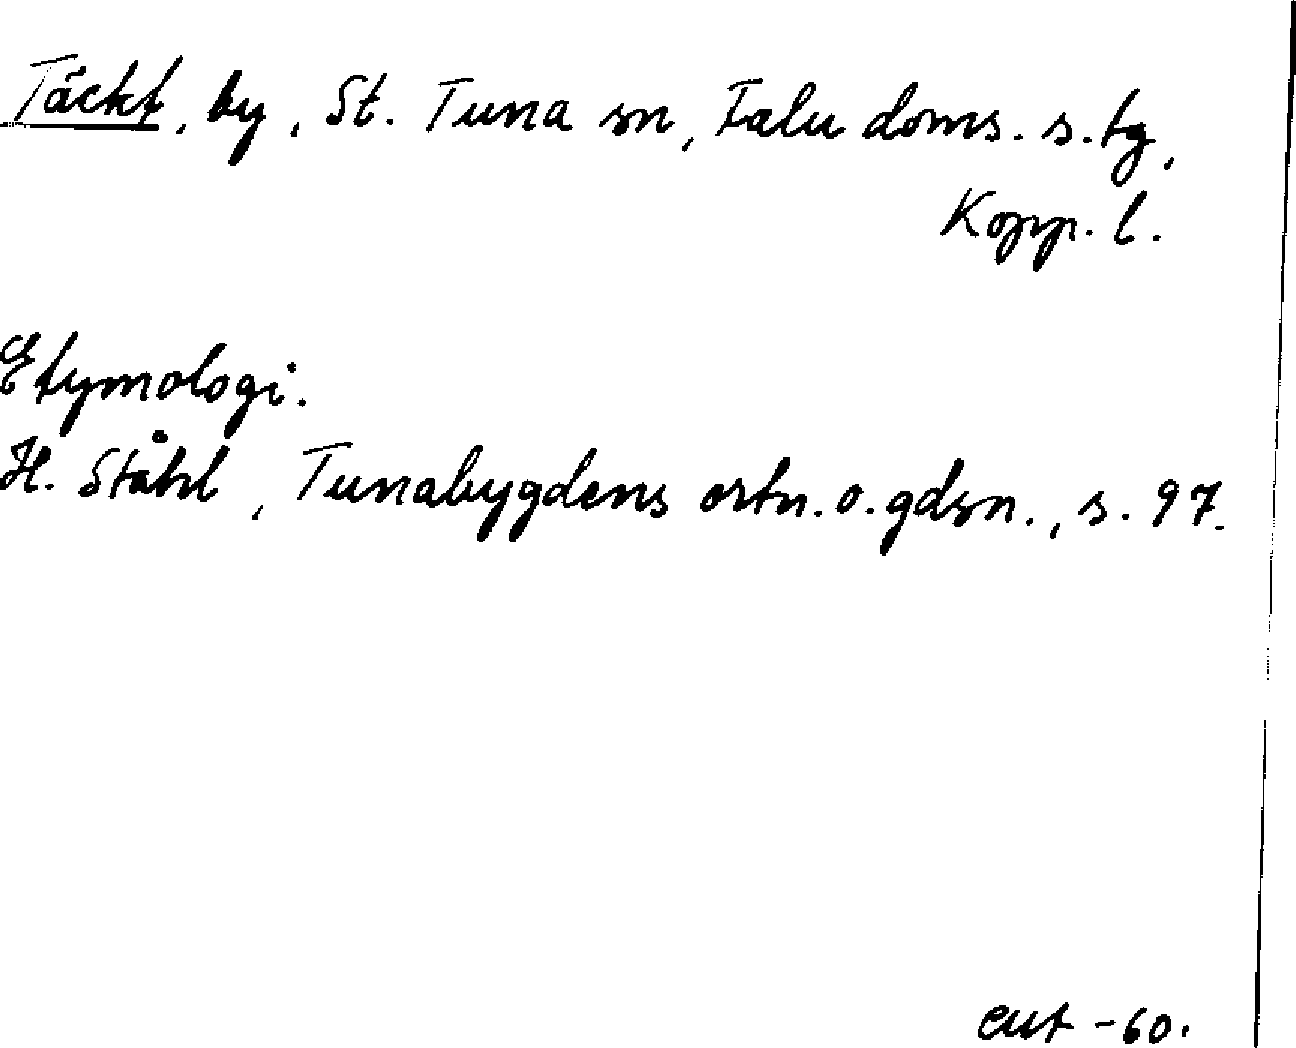 Täckt, by, St. Tuna sn, Falu doms. s. tg,
Kopp. l.
Etymologi.
H. Ståhl, Tunabygdens ortn. o. gdsn., s. 97.
-60.